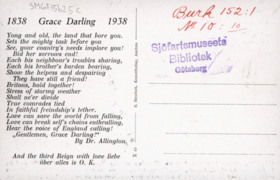 SMG1526C
1838 Grace Darling 1938
Young and old, the land that bore you,
Sets the mighty task before you
See, your country's needs implore you!
Bid her sorrows end!
Each his neighbour's troubles sharing,
Each his brother's burden bearing,
Show the helpless and despairing
They have still a friend!
Britons, hold together!
Stress of stormy weather
Shall ne'er divide
True comrades tied
In faithful friendship's tether.
Love can save the world from falling,
Love can break self's chains enthralling,
Hear the voice of England calling!
"Gentlemen, Grace Darling!"
By Dr. Allington,
And the third Reign with love liebe
über alles is O. K.
Burk 152:1
No 10:-10
Sjöfartsmuseets
Bibliotek
Göteborg